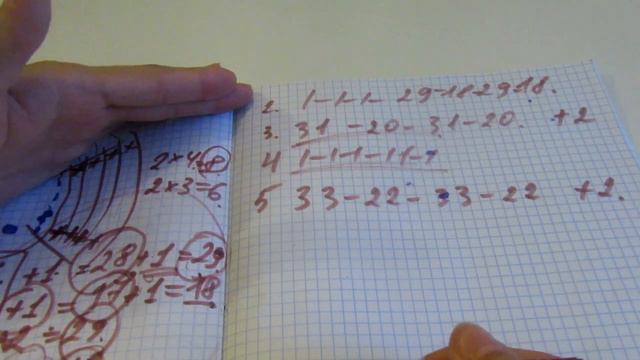 2×4=8
2×3=6
+1 =28+1=29
+1 =17+1=18
+2 =29
2. 1-1-1- 29-18-29-18.
3. 31 -20- 31-20. +2
4 1-1-1-11-1
5 33-22-33-22 +2.